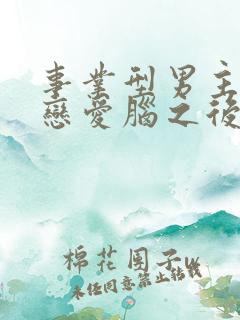 事業型男主
戀愛腦之後
棉花團子w
未經同意禁止轉載